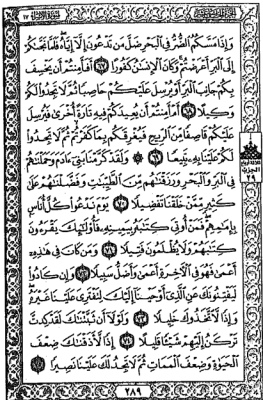 وَإِذَا مَسَّكُمُ الضُّرُّ فِي الْبَحْرِ ضَلَّ مَن تَدْعُونَ إِلَّا إِيَّاهُ فَلَمَّا نَجَّىٰكُمْ
إِلَى الْبَرِّ أَعْرَضْتُمْ وَكَانَ الْإِنسَٰنُ كَفُورًا ٦٧ أَفَأَمِنتُمْ أَن يَخْسِفَ
بِكُمْ جَانِبَ الْبَرِّ أَوْ يُرْسِلَ عَلَيْكُمْ حَاصِبًا ثُمَّ لَا تَجِدُوا لَكُمْ
وَكِيلًا ٦٨ أَمْ أَمِنتُمْ أَن يُعِيدَكُمْ فِيهِ تَارَةً أُخْرَىٰ فَيُرْسِلَ
عَلَيْكُمْ قَاصِفًا مِّنَ الرِّيحِ فَيُغْرِقَكُم بِمَا كَفَرْتُمْ ثُمَّ لَا تَجِدُوا
لَكُمْ عَلَيْنَا بِهِ تَبِيعًا ٦٩ وَلَقَدْ كَرَّمْنَا بَنِي ءَادَمَ وَحَمَلْنَٰهُمْ
فِي الْبَرِّ وَالْبَحْرِ وَرَزَقْنَٰهُم مِّنَ الطَّيِّبَٰتِ وَفَضَّلْنَٰهُمْ عَلَىٰ
كَثِيرٍ مِّمَّنْ خَلَقْنَا تَفْضِيلًا ٧٠ يَوْمَ نَدْعُوا كُلَّ أُنَاسٍ
بِإِمَٰمِهِمْ فَمَنْ أُوتِيَ كِتَٰبَهُ بِيَمِينِهِ فَأُولَٰئِكَ يَقْرَءُونَ
كِتَٰبَهُمْ وَلَا يُظْلَمُونَ فَتِيلًا ٧١ وَمَن كَانَ فِي هَٰذِهِ
أَعْمَىٰ فَهُوَ فِي الْآخِرَةِ أَعْمَىٰ وَأَضَلُّ سَبِيلًا ٧٢ وَإِن كَادُوا
لَيَفْتِنُونَكَ عَنِ الَّذِي أَوْحَيْنَا إِلَيْكَ لِتَفْتَرِيَ عَلَيْنَا غَيْرَهُ
وَإِذًا لَّاتَّخَذُوكَ خَلِيلًا ٧٣ وَلَوْلَا أَن ثَبَّتْنَٰكَ لَقَدْ كِدتَّ
تَرْكَنُ إِلَيْهِمْ شَيْئًا قَلِيلًا ٧٤ إِذًا لَّأَذَقْنَٰكَ ضِعْفَ
الْحَيَوٰةِ وَضِعْفَ الْمَمَاتِ ثُمَّ لَا تَجِدُ لَكَ عَلَيْنَا نَصِيرًا ٧٥
الحزب
٢٩
٢٨٩